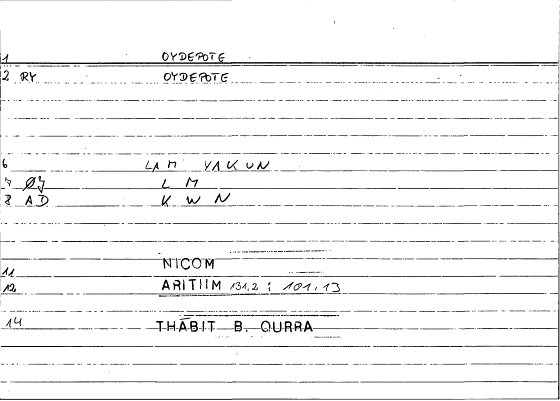 1 OYDEPOTE
2 RY OYDEPOTE
6 LAM YAKUN
7 ØJ L M
8 AD K W N
11 NICOM
12 ARITIIM 131,2 : 101.13
14 THĀBIT B. QURRA